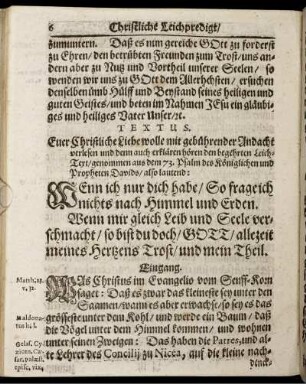 6 Christliche Leichpredigt/
zumuntern. Daß es nun gereiche GOtt zu forderst
zu Ehren/ den betrübten Freunden zum Trost/ uns an-
dern aber zu Nutz und Vortheil unserer Seelen/ so
wenden wir uns zu GOtt dem Allerhöhsten/ ersuchen
denselben ümb Hülff und Beystand seines heiligen und
guten Geistes/ und beten im Nahmen JEsu ein gläubi-
ges und heiliges Vater Unser/ ꝛc.
TEXTUS.
Euer Christliche Liebe wolle mit gebührender Andacht
verlesen und denn auch erklären hören den begehrten Leich-
Text/ genommen aus dem 73. Psalm des Königlichen und
Propheten Davids/ also lautend:
WEnn ich nur dich habe/ So frage ich
nichts nach Himmel und Erden.
Wenn mir gleich Leib und Seele ver-
schmacht/ so bist du doch/ GOTT/ allezeit
meines Hertzens Trost/ und mein Theil.
Eingang.
Matth. 13.
v. 32.
WAs Christus im Evangelio vom Senff-Korn
saget: Daß es zwar das kleineste sey unter den
Saamen/ wann es aber erwächst/ so sey es das
grösseste unter dem Kohl/ und werde ein Baum/ daß
die Vögel unter dem Himmel kommen/ und wohnen
unter seinen Zweigen: Das haben die Patres, und al-
te Lehrer des Concilij zu Nicæa, auf die kleine nach-